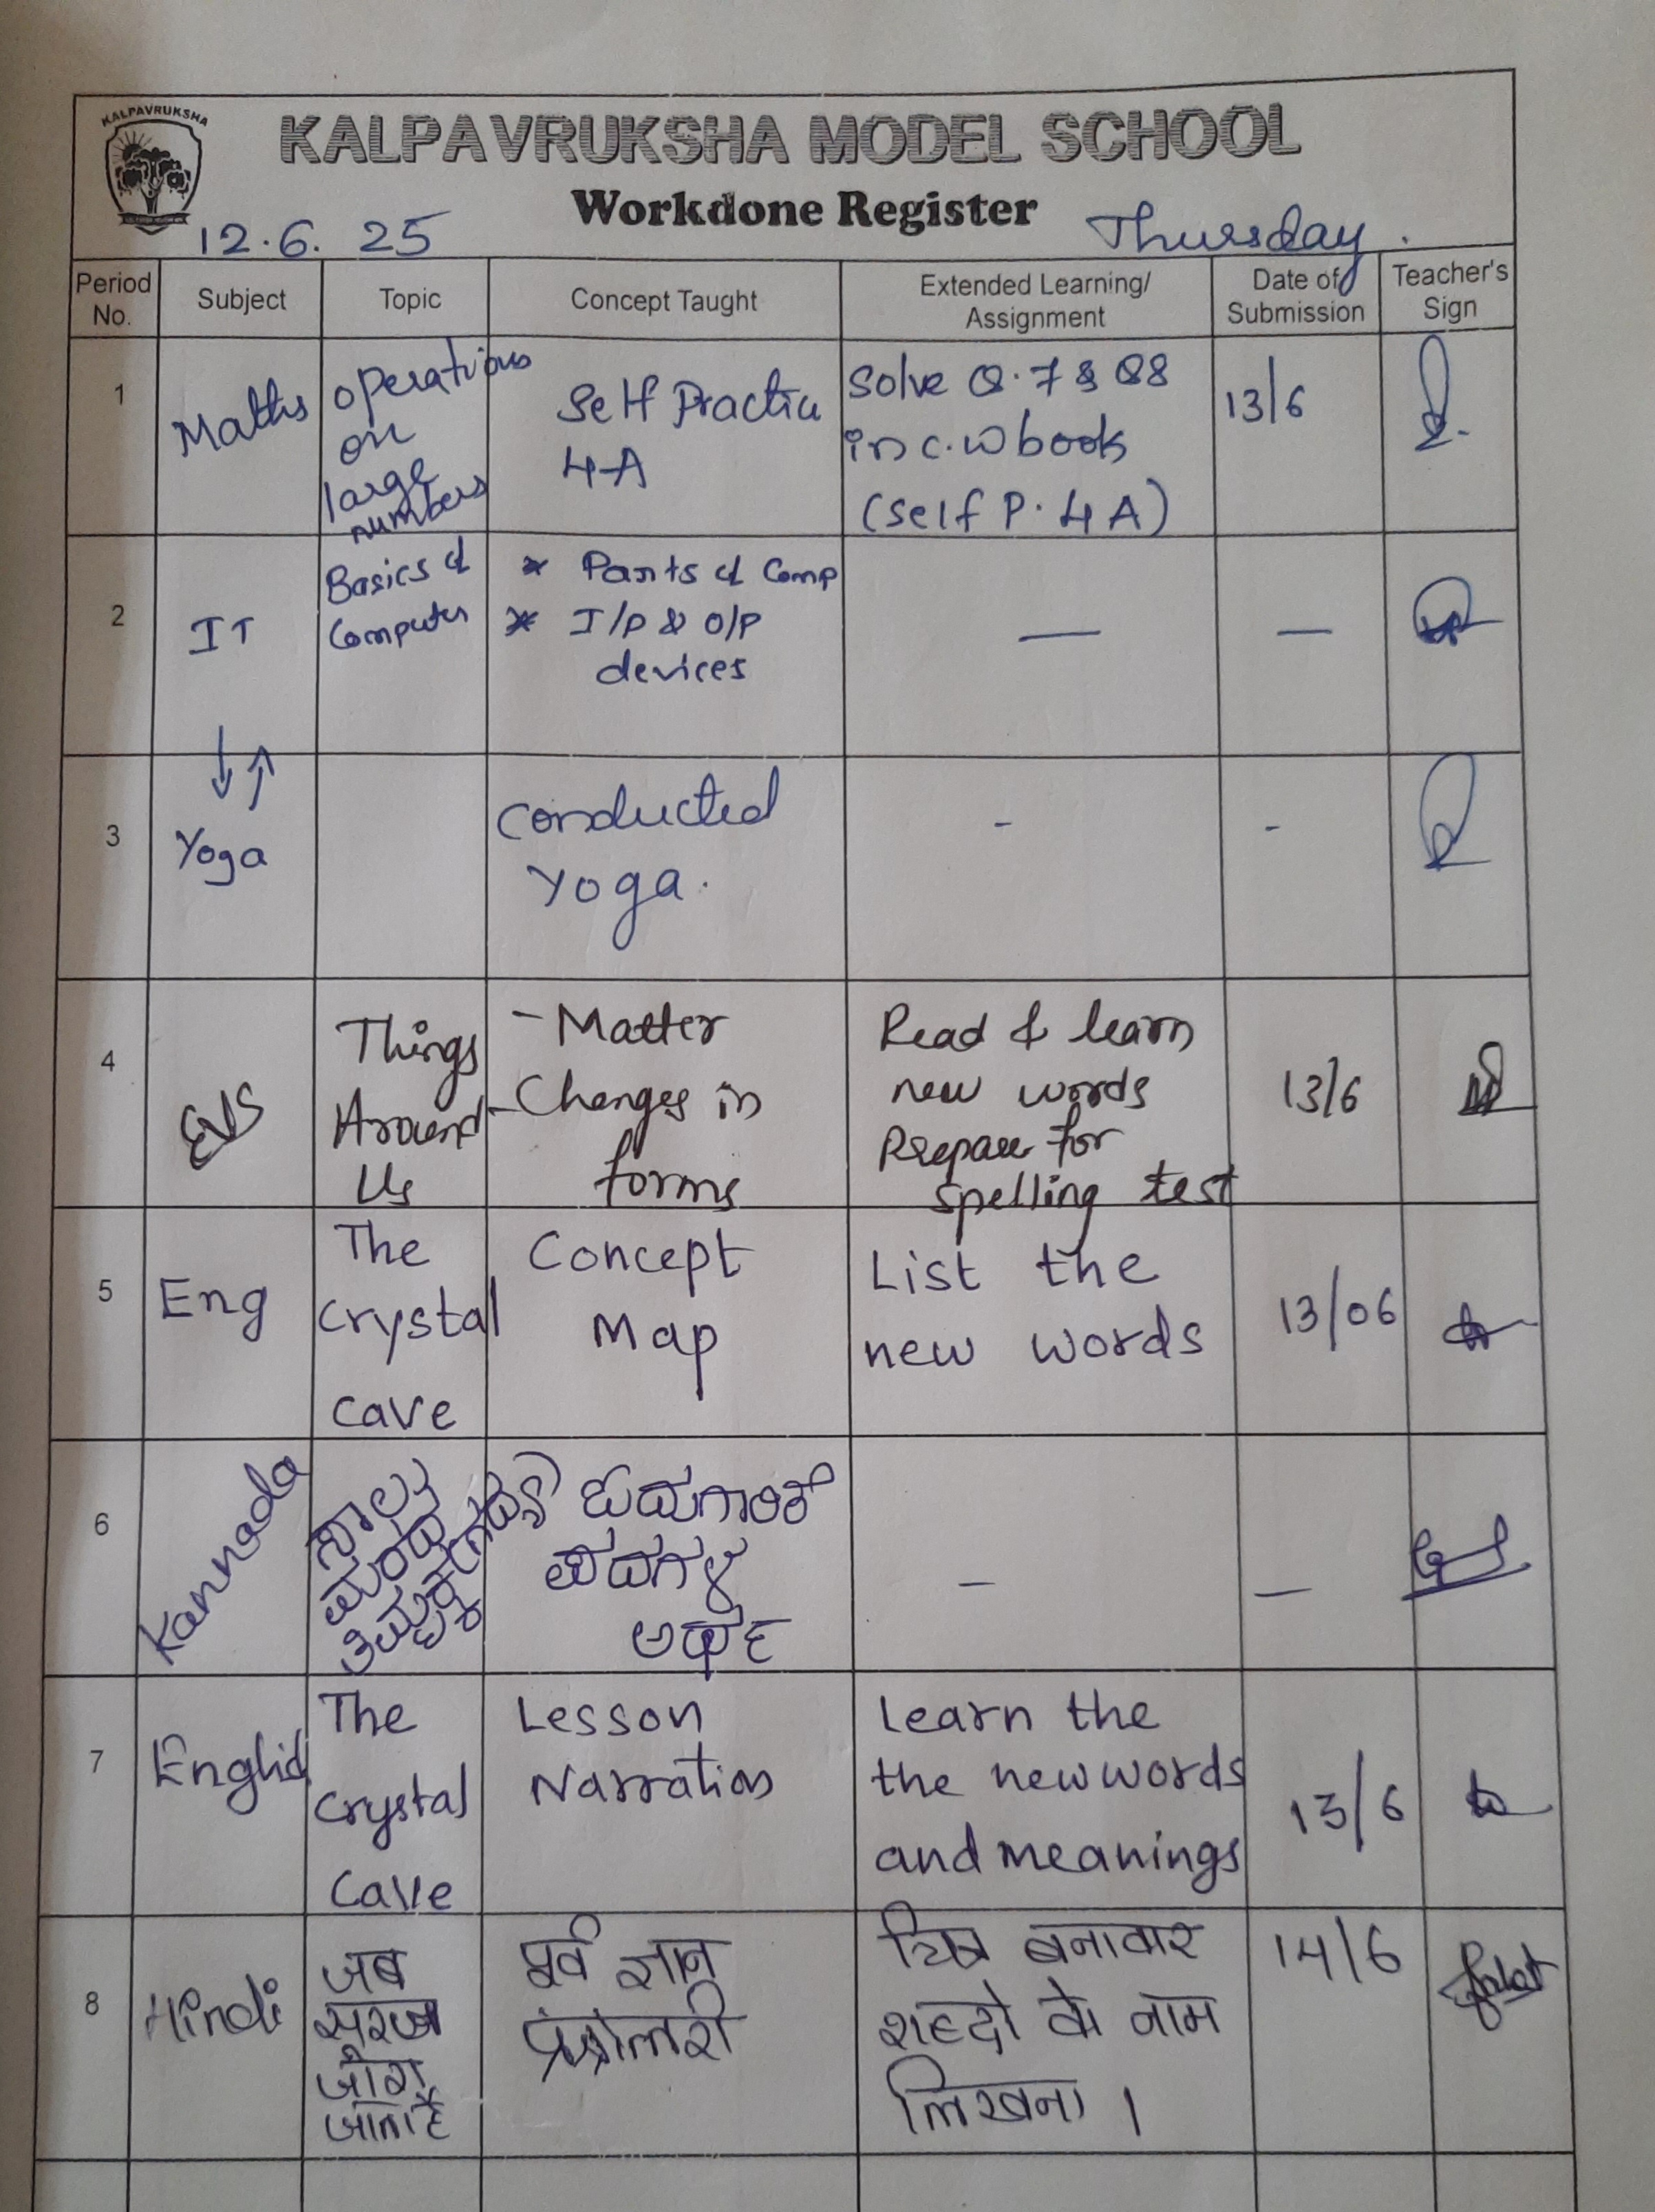 KALPAVRUKSHA
KALPAVRUKSHA MODEL SCHOOL
Workdone Register
12.6. 25
Thursday.
Period No.
Subject
Topic
Concept Taught
Extended Learning/
Assignment
Date of
Submission
Teacher's
Sign
1
Maths
operations
on
large
numbers
Self Practice
4-A
Solve Q.7 & Q8
in c.w books
(self P. 4 A)
13/6
2
IT
Basics of
Computer
* Parts of Comp
* I/P & O/P
devices
—
—
3
Yoga
Conducted
Yoga.
-
-
4
EVS
Things
Around
Us
- Matter
- Changes in
forms
Read & learn
new words
Prepare for
spelling test
13/6
5
Eng
The
Crystal
cave
Concept
Map
List the
new words
13/06
6
Kannada
ಸಾಲು
ಮರದ
ತಿಮ್ಮಕ್ಕ (ಗದ್ಯ)
ಓದುಗಾರಿಕೆ
ಪದಗಳ
ಅರ್ಥ
—
—
7
English
The
Crystal
Cave
Lesson
Narration
Learn the
the new words
and meanings
13/6
8
Hindi
जब
सूरज
जाता है
पूर्व ज्ञान
चित्र बनाकर
शब्दो के नाम
लिखना ।
14/6